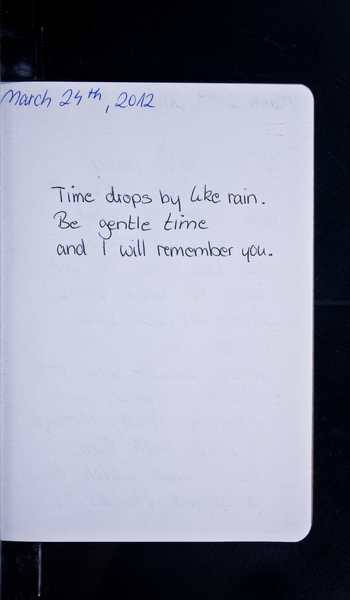 March 24th, 2012
Time drops by like rain.
Be gentle time
and I will remember you.